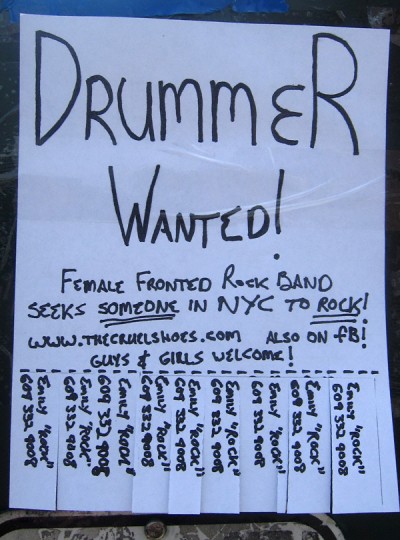 DRUMMER
WANTED!
FEMALE FRONTED ROCK BAND
SEEKS SOMEONE IN NYC TO ROCK!
WWW.THECRUELSHOES.COM ALSO ON FB!
GUYS & GIRLS WELCOME!
Emily "ROCK"
609 332 9008
Emily "ROCK"
609 332 9008
EMILY "ROCK"
609 332 9008
Emily "ROCK"
609 332 9008
Emily "ROCK"
609 332 9008
Emily "ROCK"
609 332 9008
Emily "ROCK"
609 332 9008
Emily "ROCK"
609 332 9008
Emily "ROCK"
609 332 9008